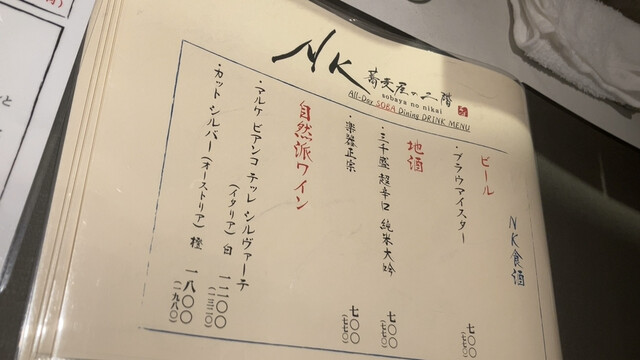 NK 蕎麦屋の二階
sobaya no nikai
All-Day SOBA Dining DRINK MENU
NK食酒
ビール
・ブラウマイスター 七〇〇
(七七〇)
地酒
・三千盛 超辛口 純米大吟 七〇〇
(七七〇)
・楽器正宗 七〇〇
(七七〇)
自然派ワイン
・マルケ ビアンコ テッレ シルヴァーテ
(イタリア) 白 一二〇〇
(一三二〇)
・カット シルバー(オーストリア) 橙 一八〇〇
(一九八〇)